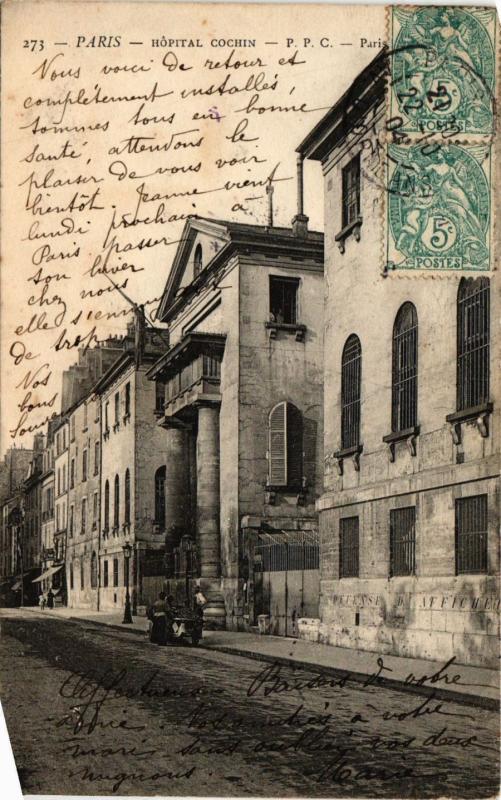 273 — PARIS — HÔPITAL COCHIN — P. P. C. — Paris
Vous voici de retour et
complètement installés,
sommes tous en bonne
santé, attendons le
plaisir de vous voir
bientôt. Jeanne vient
lundi prochain à
Paris passer
son hiver
chez nous
elle s'ennuie
de trop
Nos
bons
Souv
5c
POSTES
5c
POSTES
22
04
DEFENSE D'AFFICHER
Affectueux Baisers de votre
amie. Nos amitiés à votre
mari sans oublier vos deux
mignons. Marie